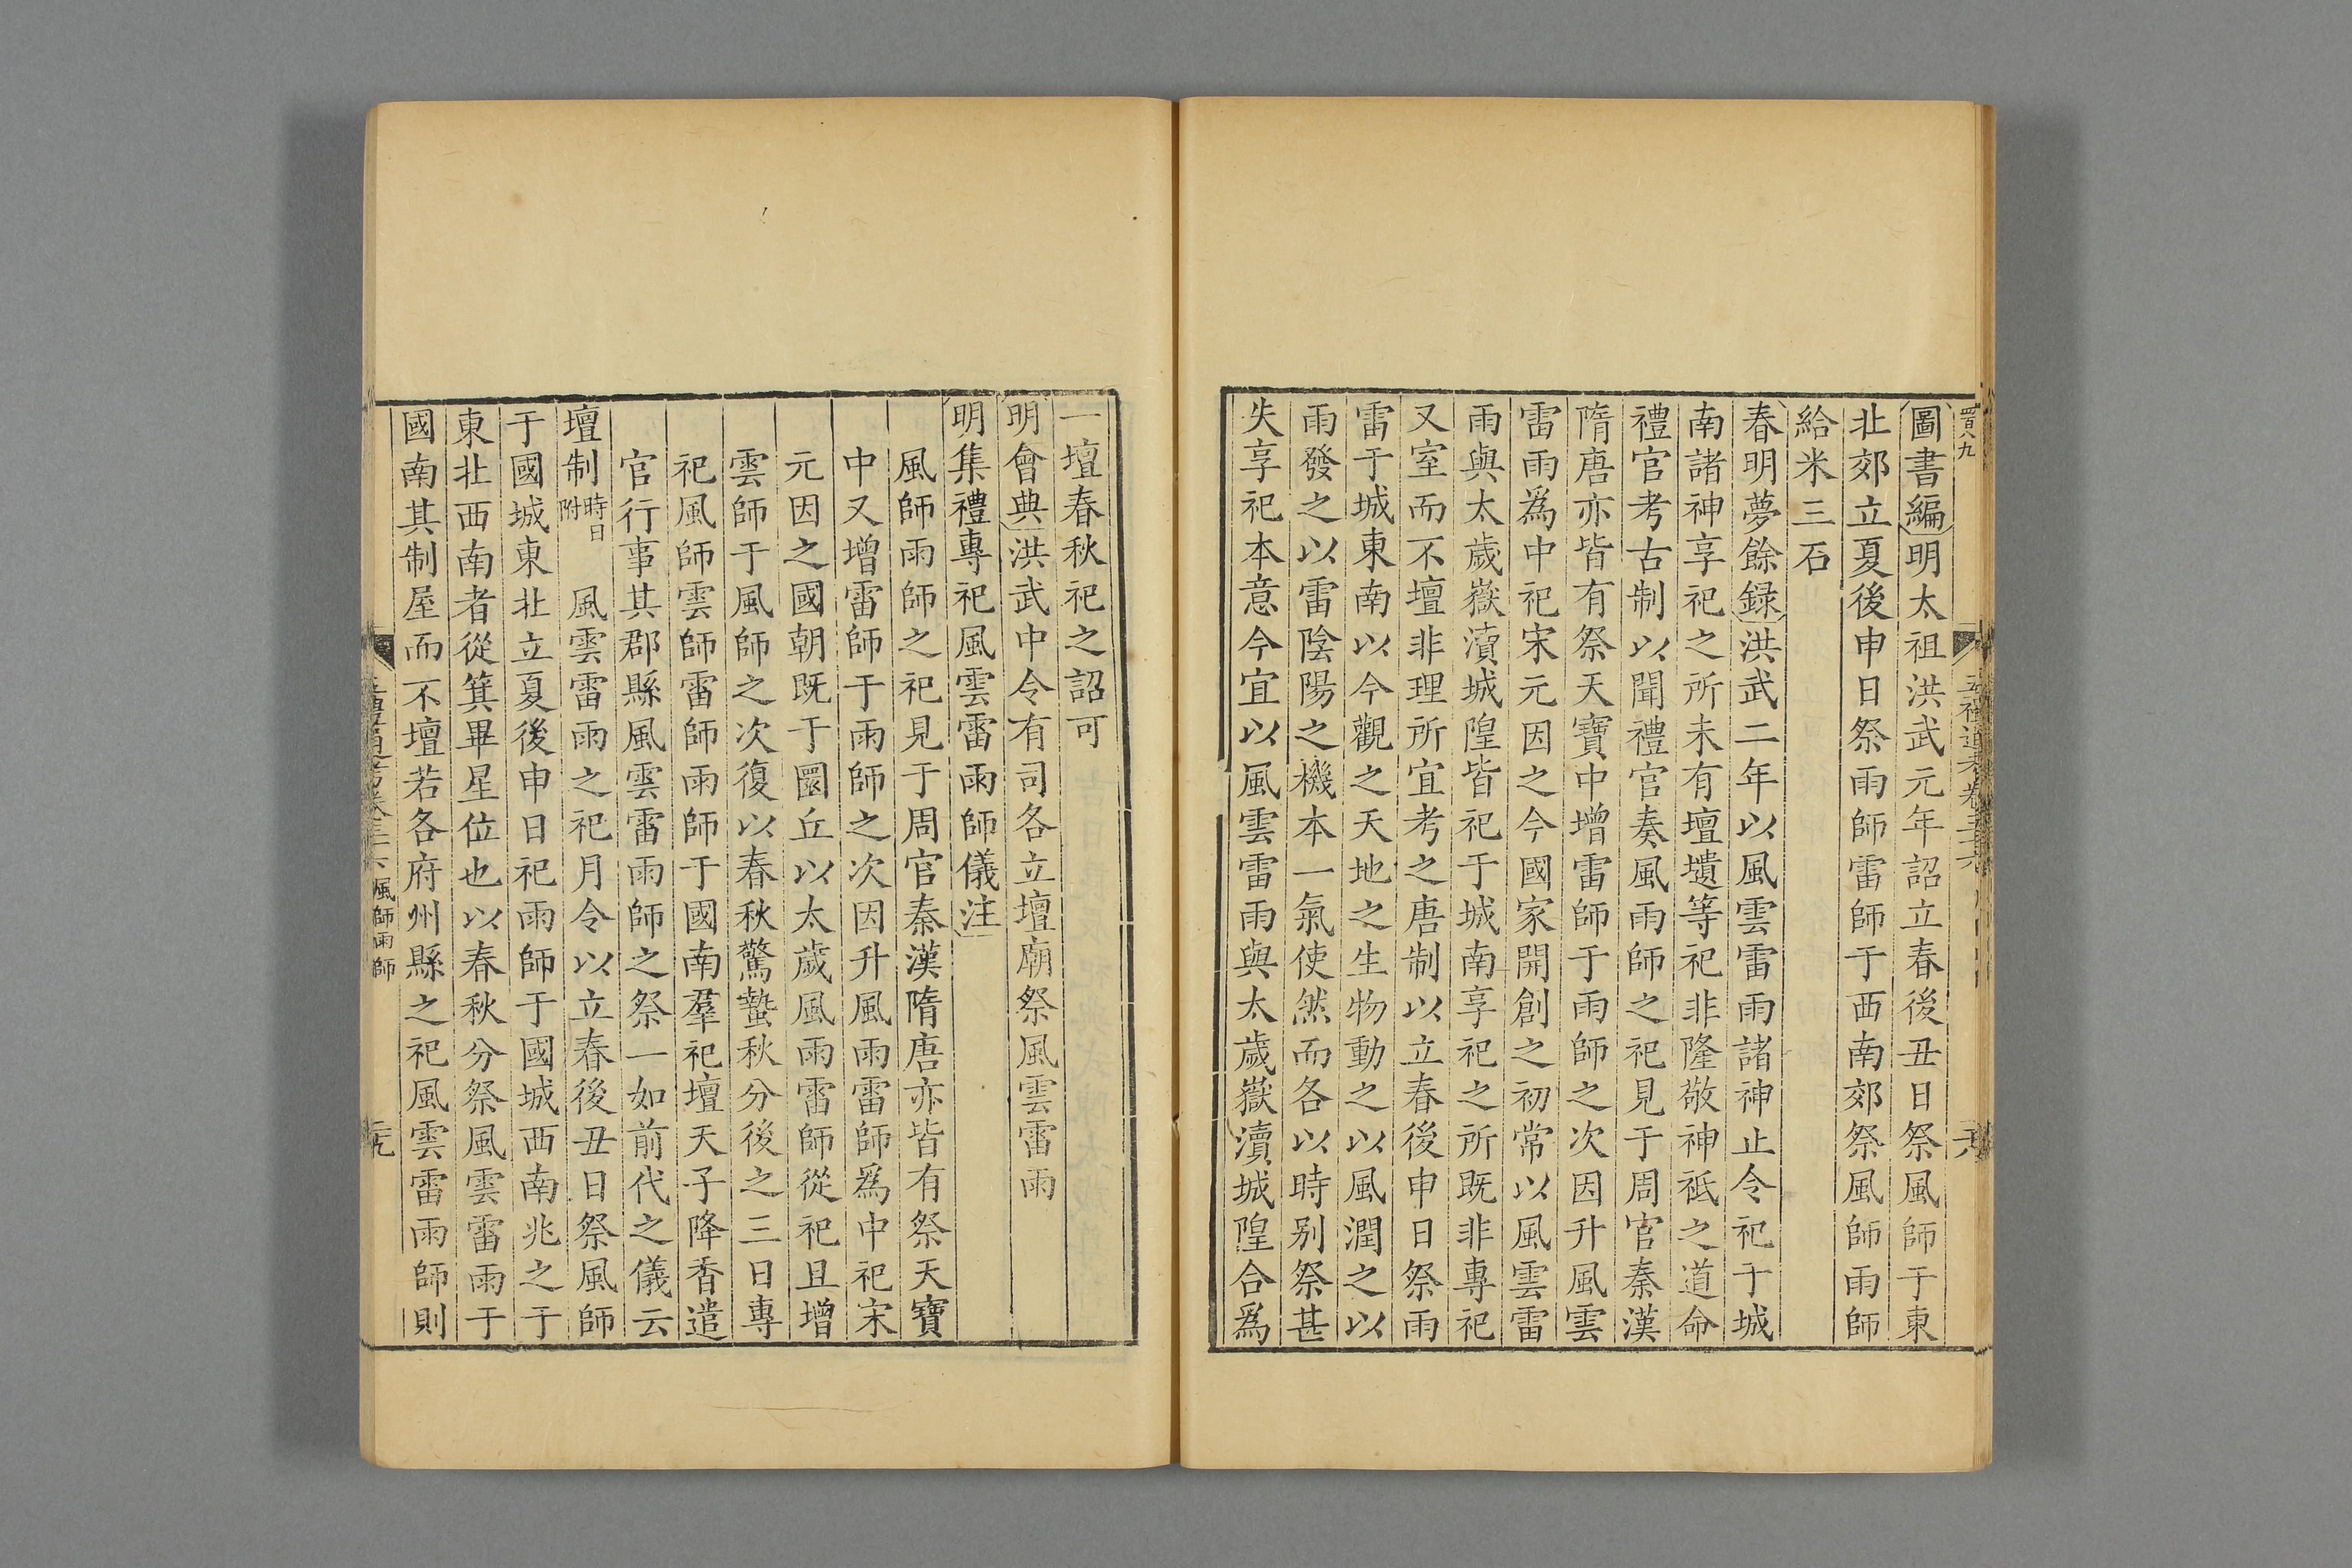 圖書編明太祖洪武元年詔立春後丑日祭風師于東
北郊立夏後申日祭雨師雷師于西南郊祭風師雨師
給米三石
春明夢餘録洪武二年以風雲雷雨諸神止令祀于城
南諸神享祀之所未有壇壝等祀非隆敬神祇之道命
禮官考古制以聞禮官奏風雨師之祀見于周官秦漢
隋唐亦皆有祭天寶中增雷師于雨師之次因升風雲
雷雨爲中祀宋元因之今國家開創之初常以風雲雷
雨與太歲嶽瀆城隍皆祀于城南享祀之所既非專祀
又室而不壇非理所宜考之唐制以立春後申日祭雨
雷于城東南以今觀之天地之生物動之以風潤之以
雨發之以雷陰陽之機本一氣使然而各以時别祭甚
失享祀本意今宜以風雲雷雨與太歲嶽瀆城隍合爲
一壇春秋祀之詔可
明會典洪武中令有司各立壇廟祭風雲雷雨
明集禮專祀風雲雷雨師儀注
風師雨師之祀見于周官秦漢隋唐亦皆有祭天寶
中又增雷師于雨師之次因升風雨雷師爲中祀宋
元因之國朝既于圜丘以太歲風雨雷師從祀且增
雲師于風師之次復以春秋驚蟄秋分後之三日專
祀風師雲師雷師雨師于國南羣祀壇天子降香遣
官行事其郡縣風雲雷雨師之祭一如前代之儀云
壇制時日附 風雲雷雨之祀月令以立春後丑日祭風師
于國城東北立夏後申日祀雨師于國城西南兆之于
東北西南者從箕畢星位也以春秋分祭風雲雷雨于
國南其制屋而不壇若各府州縣之祀風雲雷雨師則
風師雨師